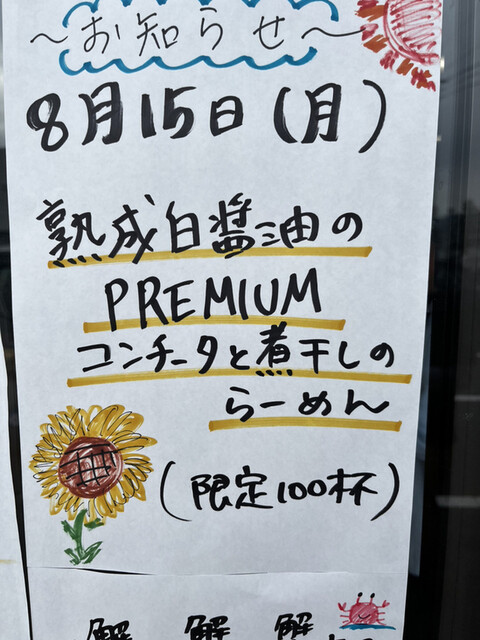 ～お知らせ～
8月15日(月)
熟成白醤油の
PREMIUM
コンチータと煮干しの
らーめん
(限定100杯)
解 解 解